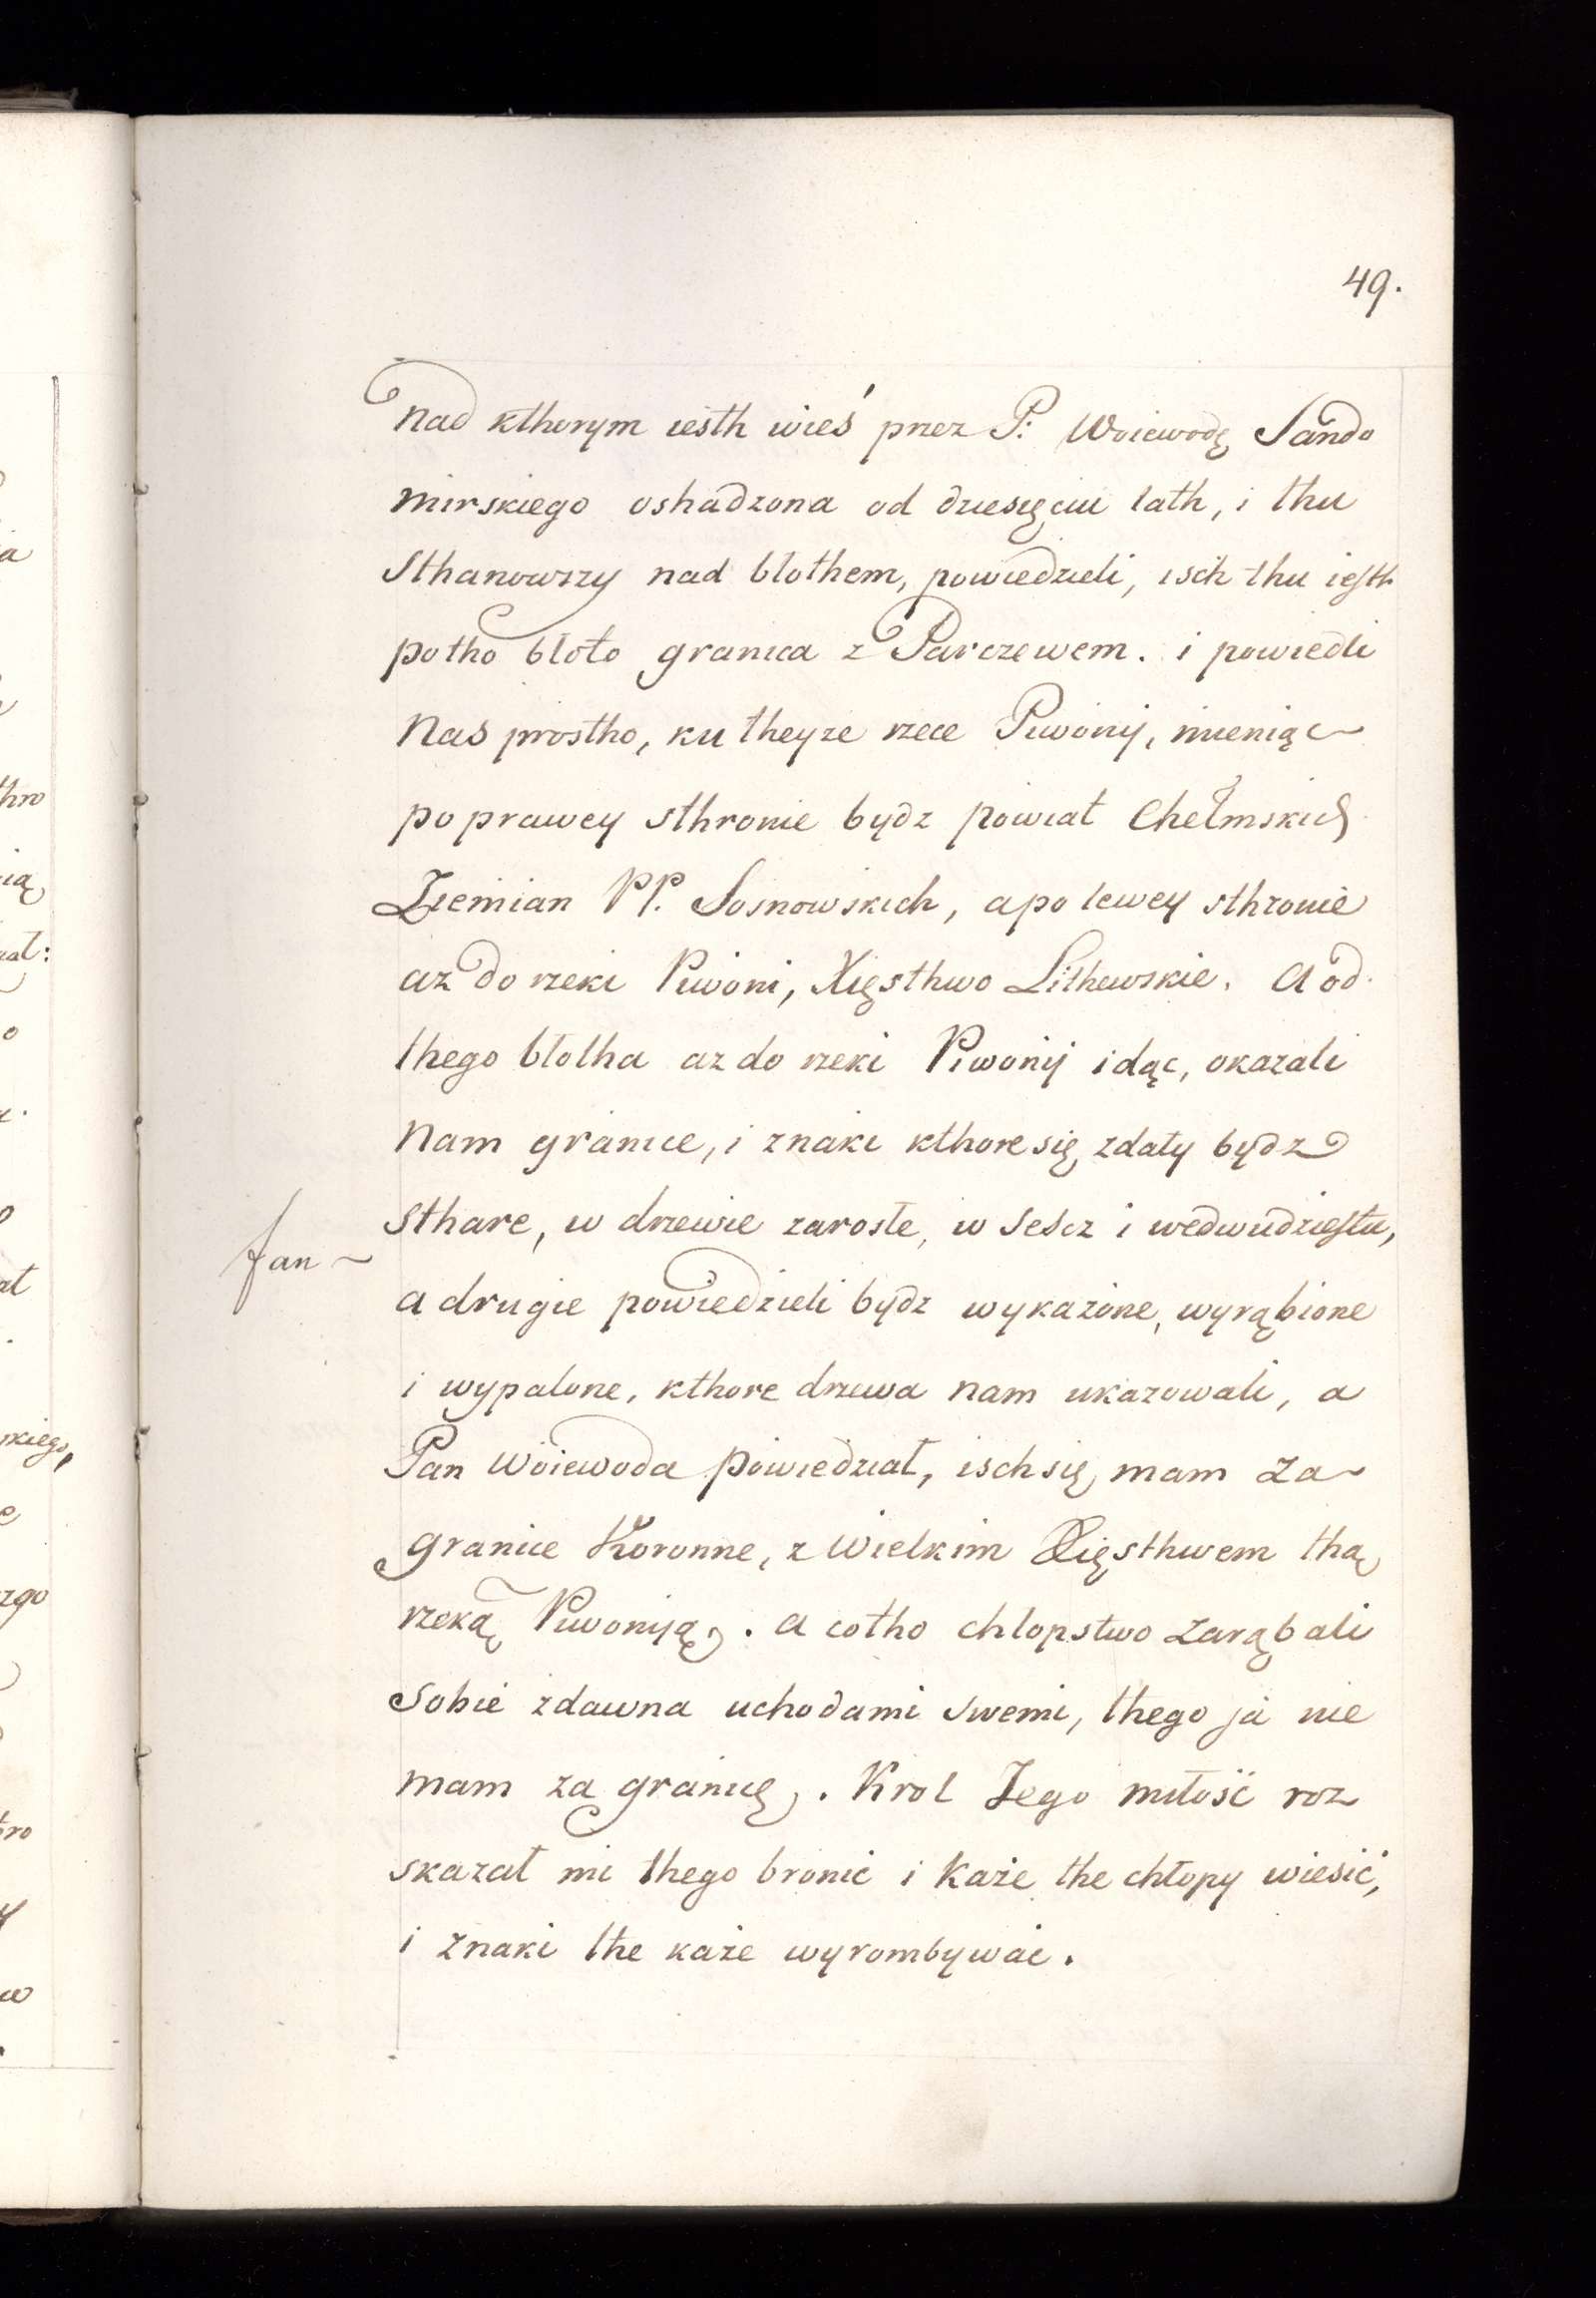 49.
nad kthorym iesth wieś przez P: Woiewodę Sando
mirskiego oshadzona od dziesięciu lath, i thu
Sthanowszy nad błothem, powiedzieli, isch thu iesth
potho błoto granica z Parczewem. i powiedli
Nas prostho, ku theyze rzece Piwonij, mieniąc
po prawey sthronie bydz powiat Chełmskich
Ziemian PP. Sosnowskich, a po lewey sthronie
az do rzeki Piwoni, Xięsthwo Lithewskie. A od
thego błotha az do rzeki Piwonij idąc, okazali
Nam granice, i znaki kthore się zdały bydz
sthare, w drzewie zarosłe, w sescz i wedwudziestu,
a drugie powiedzieli bydz wykażone, wyrąbione
i wypalone, kthore drzewa nam ukazowali, a
Pan Woiewoda powiedział, isch się mam za
granice Koronne, z Wielkim Xięsthwem thą
rzeką Piwoniją. A cotho chlopstwo zarąbali
Sobie zdawna uchodami swemi, thego ja nie
mam za granicę. Krol Jego miłość roz
skazał mi thego bronić i każe the chłopy wiesić,
i znaki the każe wyrombywać.
fan